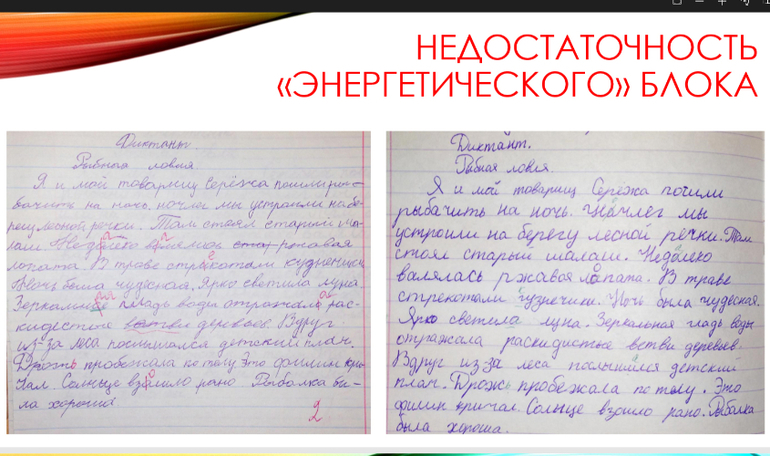 НЕДОСТАТОЧНОСТЬ
«ЭНЕРГЕТИЧЕСКОГО» БЛОКА
Диктант.
Рыбная ловля.
Я и мой товарищ Серёжа пошли
на ночь. ночлег мы устроили на бе-
регу лесной речки. Там стоял старый ша-
лаш
лопата. В траве стрекотали кузнечики
Ночь была чудесная. Ярко светила луна
гладь воды отражала рас-
деревьев. Вдруг
из-за леса послышался детский плач.
Дрожь пробежала по телу Это филин кри-
чал. Солнце рано Рыбалка бы-
ла хороша
2
Диктант.
Рыбная ловля.
Я и мой товарищ Сережа пошли
рыбачить на ночь. Начлег мы
устроили на берегу лесной речки. Там
стоял старый шалаш. Недалеко
валялась ржавая лопата. В траве
стрекотали гузнечики. Ночь была чудесная.
Ярко светела луна. Зеркальная гладь воды
отражала раскидистые ветви деревьев
Вдруг из за леса послышился детский
плач. Дрожь пробежала по телу. Это
филин кричал. Солнце взошло рано. Рыбалка
была хороша.